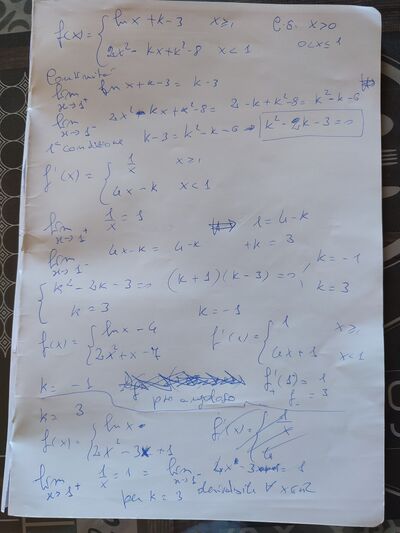 f(x) = { ln x + k - 3   x ≥ 1   C.E. x > 0
2x² - kx + k² - 8   x < 1   0 < x ≤ 1
Continuità
lim x→1⁺ ln x + k - 3 = k - 3
lim x→1⁻ 2x² - kx + k² - 8 = 2 - k + k² - 8 = k² - k - 6
1ª condizione   k - 3 = k² - k - 6 → k² - 2k - 3 = 0
f'(x) = { 1/x   x ≥ 1
4x - k   x < 1
lim x→1⁺ 1/x = 1   1 = 4 - k
lim x→1⁻ 4x - k = 4 - k   + k = 3
{ k² - 2k - 3 = 0   (k + 1)(k - 3) = 0   k = -1
k = 3   k = -1   k = 3
f(x) = { ln x - 4   f'(x) = { 1   x ≥ 1
2x² + x - 7   4x + 1   x < 1
k = -1   f'₊(1) = 1
pto angoloso   f'₋ = 3
k = 3
f(x) = { ln x   f'(x) = { 1/x
2x² - 3x + 1   4
lim x→1⁺ 1/x = 1 = lim x→1⁻ 4x - 3 = 1
per k = 3 derivabile ∀ x ∈ R